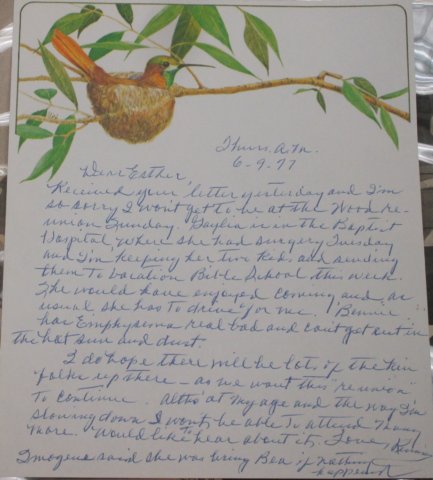 Thurs. A.M.
6-9-77
Dear Esther,
Received your letter yesterday and I'm
so sorry I won't get to be at the Wood re-
union Sunday. is in the Baptist
Hospital, where she had surgery Tuesday
and I'm keeping her two kids, and sending
them to Vacation Bible School this week.
She would have enjoyed coming and, as
usual, she has to "drive" for me.
has Emphysema real bad and can't get out in
the hot sun and dust.
I do hope there will be lots of the kin
folks up there - as we want this "reunion"
to continue. Altho' at my age and the way I'm
slowing down I won't be able to attend many
more. Would like to hear about it, Love,
Imogene said she was bring Bea if nothing
happened